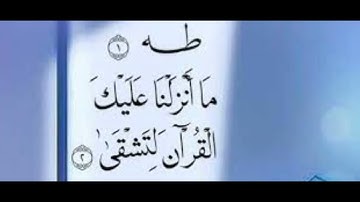 طه ١
مَا أَنزَلْنَا عَلَيْكَ
الْقُرْآنَ لِتَشْقَىٰ ٢